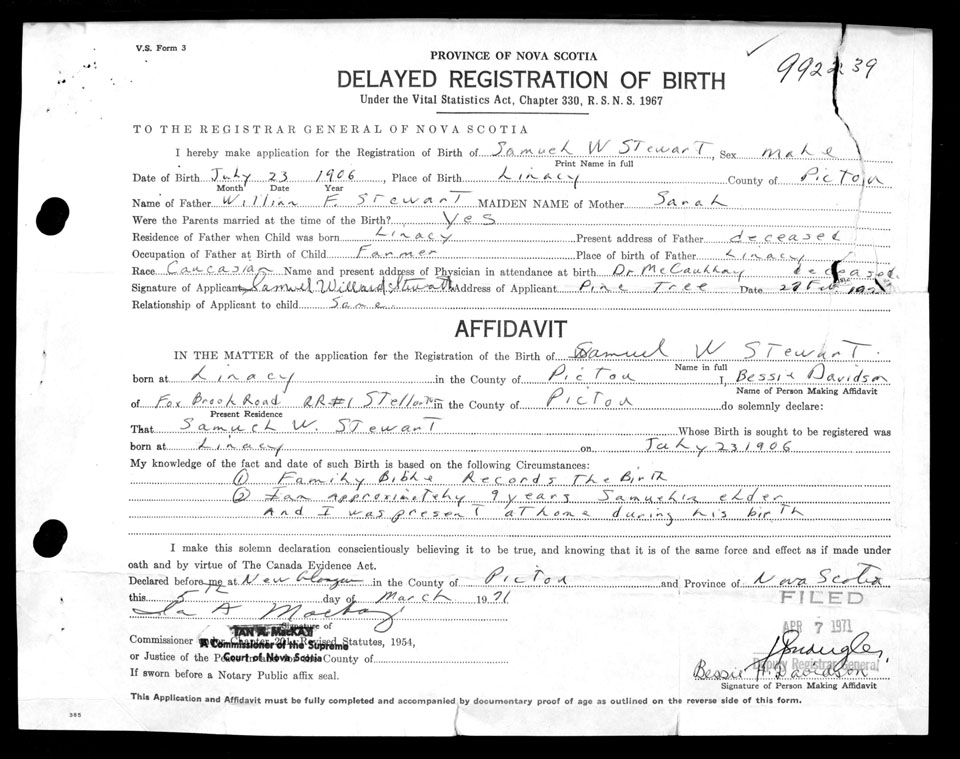 V.S. Form 3
PROVINCE OF NOVA SCOTIA
992239
DELAYED REGISTRATION OF BIRTH
Under the Vital Statistics Act, Chapter 330, R.S.N.S. 1967
TO THE REGISTRAR GENERAL OF NOVA SCOTIA
I hereby make application for the Registration of Birth of Samuel W Stewart, Sex male
Print Name in full
Date of Birth July 23 1906, Place of Birth Linacy County of Pictou
Month Date Year
Name of Father William F. Stewart MAIDEN NAME of Mother Sarah
Were the Parents married at the time of the Birth? Yes
Residence of Father when Child was born Linacy Present address of Father deceased
Occupation of Father at Birth of Child Farmer Place of birth of Father Linacy
Race Caucasian Name and present address of Physician in attendance at birth Dr deceased
Signature of Applicant Samuel Willard Stewart Address of Applicant Pine Tree Date 27 Feb
Relationship of Applicant to child Same
AFFIDAVIT
IN THE MATTER of the application for the Registration of the Birth of Samuel W Stewart.
Name in full
born at Linacy in the County of Pictou I, Bessie Davidson
Name of Person Making Affidavit
of Fox Brook Road RR#1 Stellarton in the County of Pictou do solemnly declare:
Present Residence
That Samuel W. Stewart Whose Birth is sought to be registered was
born at Linacy on July 23 1906
My knowledge of the fact and date of such Birth is based on the following Circumstances:
① Family Bible Records The Birth
② I am approximately 9 years Samuel's elder
And I was present at home during his birth
I make this solemn declaration conscientiously believing it to be true, and knowing that it is of the same force and effect as if made under
oath and by virtue of The Canada Evidence Act.
Declared before me at New Glasgow in the County of Pictou and Province of Nova Scotia
this 5th day of March 1971
FILED
Ian A MacKay
APR 7 1971
Signature of
IAN A. MacKAY
Commissioner under Chapter 201, Revised Statutes, 1954,
A Commissioner of the Supreme
or Justice of the Peace in and for the County of
Court of Nova Scotia
Deputy Registrar General
If sworn before a Notary Public affix seal.
Bessie H. Davidson
Signature of Person Making Affidavit
This Application and Affidavit must be fully completed and accompanied by documentary proof of age as outlined on the reverse side of this form.
385